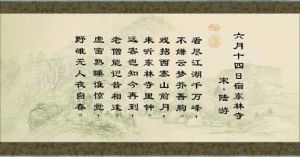 六月十四日宿东林寺
宋·陆游
看尽江湖千万峰，
不嫌云梦芥吾胸。
戏招西塞山前月，
来听东林寺里钟。
远客岂知今再到，
老僧能记昔相逢。
虚窗熟睡谁惊觉，
野碓无人夜自舂。